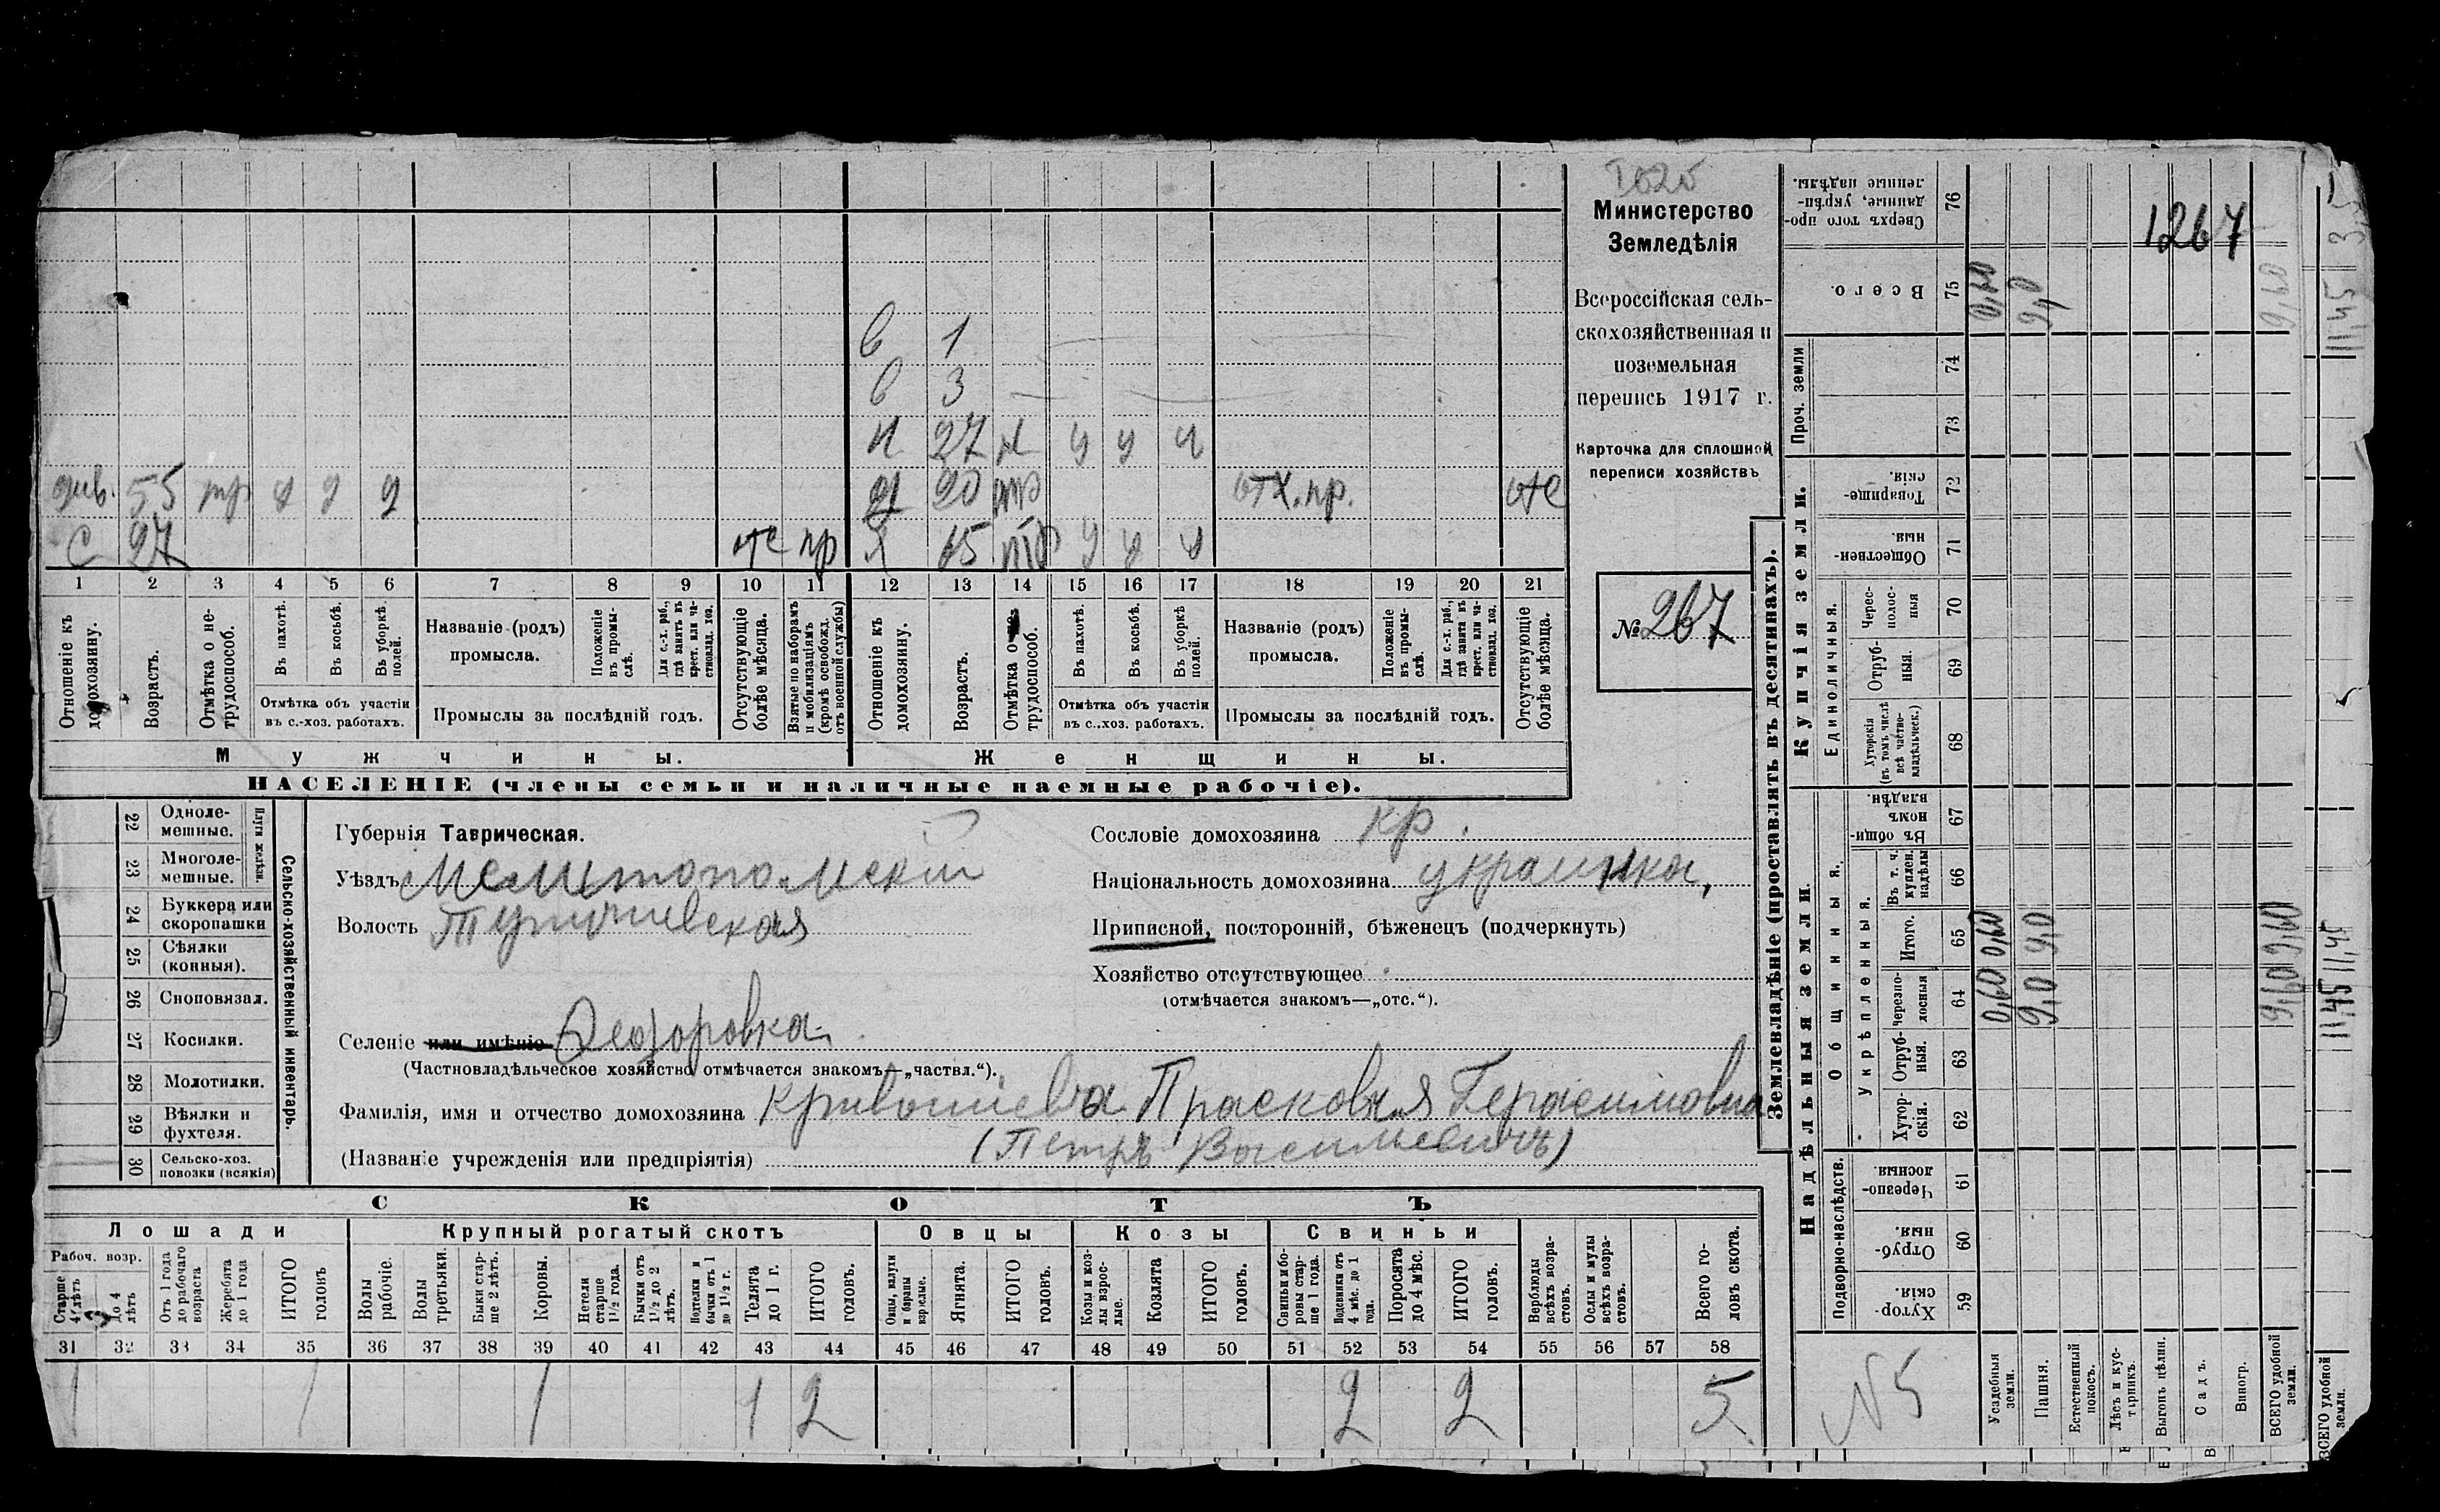 Министерство
Земледѣлія
Всероссійская сель-
скохозяйственная и
поземельная
перепись 1917 г.
Карточка для сплошной
переписи хозяйствъ
№ 267
1267
в 1
в 3
н 27 н у у у
55 тр у у у
20 отх. пр. отс
С 27 отс пр Я 65 тр у у у
1 2 3 4 5 6 7 8 9 10 11 12 13 14 15 16 17 18 19 20 21
Отношеніе къ домохозяину.
Возрастъ.
Отмѣтка о не-трудоспособ.
Въ пахотѣ.
Въ косьбѣ.
Въ уборкѣ полей.
Отмѣтка объ участіи въ с.-хоз. работахъ.
Названіе (родъ) промысла.
Положеніе въ промыслѣ.
Для с.-х. раб., гдѣ занятъ въ крест. или частновлад. хоз.
Промыслы за послѣдній годъ.
Отсутствующіе болѣе мѣсяца.
Взятые по наборамъ и мобилизаціямъ (кромѣ освобожд. отъ военной службы)
Отношеніе къ домохозяину.
Возрастъ.
Отмѣтка о не-трудоспособ.
Въ пахотѣ.
Въ косьбѣ.
Въ уборкѣ полей.
Отмѣтка объ участіи въ с.-хоз. работахъ.
Названіе (родъ) промысла.
Положеніе въ промыслѣ.
Для с.-х. раб., гдѣ занята въ крест. или частновлад. хоз.
Промыслы за послѣдній годъ.
Отсутствующіе болѣе мѣсяца.
Мужчины. Женщины.
НАСЕЛЕНІЕ (члены семьи и наличные наемные рабочіе).
Сельско-хозяйственный инвентарь.
Плуги желѣзн.
22 Одноле-мешные.
23 Многоле-мешные.
24 Буккера или скоропашки
25 Сѣялки (конныя).
26 Сноповязал.
27 Косилки.
28 Молотилки.
29 Вѣялки и фухтеля.
30 Сельско-хоз. повозки (всякія)
Губернія Таврическая.
Уѣздъ Мелитопольскій
Волость
Селеніе или имѣніе Феодоровка
(Частновладѣльческое хозяйство отмѣчается знакомъ—„частвл.“).
Сословіе домохозяина кр.
Національность домохозяина украинка,
Приписной, посторонній, бѣженецъ (подчеркнуть)
Хозяйство отсутствующее
(отмѣчается знакомъ—„отс.“).
Фамилія, имя и отчество домохозяина Кривошеева Прасковья Герасимовна
(Названіе учрежденія или предпріятія) (Петръ Васильевичъ)
СКОТЪ
Лошади Крупный рогатый скотъ Овцы Козы Свиньи
Рабоч. возр.
Старше 4 лѣтъ
До 4 лѣтъ
Отъ 1 года до рабочаго возраста
Жеребята до 1 года
ИТОГО головъ
Волы рабочіе.
Волы третьяки.
Быки стар-ше 2 лѣтъ.
Коровы.
Нетели старше 1½ года.
Бычки отъ 1½ до 2 лѣтъ.
Подтелки и бычки отъ 1 до 1½ г.
Телята до 1 г.
ИТОГО головъ.
Овцы, валухи и бараны взрослые.
Ягнята.
ИТОГО головъ.
Козы и козлы взрослые.
Козлята
ИТОГО головъ.
Свиньи и боровы старше 1 года.
Подсвинки отъ 4 мѣс. до 1 года.
Поросята до 4 мѣс.
ИТОГО головъ.
Верблюды всѣхъ возрастовъ.
Ослы и мулы всѣхъ возрастовъ.
Всего головъ скота.
31 32 33 34 35 36 37 38 39 40 41 42 43 44 45 46 47 48 49 50 51 52 53 54 55 56 57 58
1 1 1 1 2 2 2 5
Землевладѣніе (проставлять въ десятинахъ).
Купчія земли.
Надѣльныя земли.
Сверхъ того проданные, укрѣпленные надѣлы. 76
Всего. 75
Проч. земли 74 73
Товарищескія. 72
Общественныя. 71
Единоличныя.
Черес-полосныя 70
Отрубныя. 69
Хуторскія (въ томъ числѣ всѣ частновладѣльческ.) 68
Общинныя.
Въ общинномъ владѣн. 67
Укрѣпленныя.
Въ т. ч. куплен. надѣлы 66
Итого. 65
Черезполосныя 64
Отрубныя. 63
Хуторскія. 62
Подворно-наслѣдств.
Черезполосныя. 61
Отрубныя. 60
Хуторскія. 59
Усадебныя земли. 0,60 0,60 0,60
Пашня. 9,0 9,0 9,0
Естественный покосъ.
Лѣсъ и кустарникъ.
Выгонъ цѣлин.
Садъ.
Виногр.
ВСЕГО удобной земли. 9,60 9,60 9,60
N 5
ВСЕГО удобной земли.
11,45 11,45 11,45